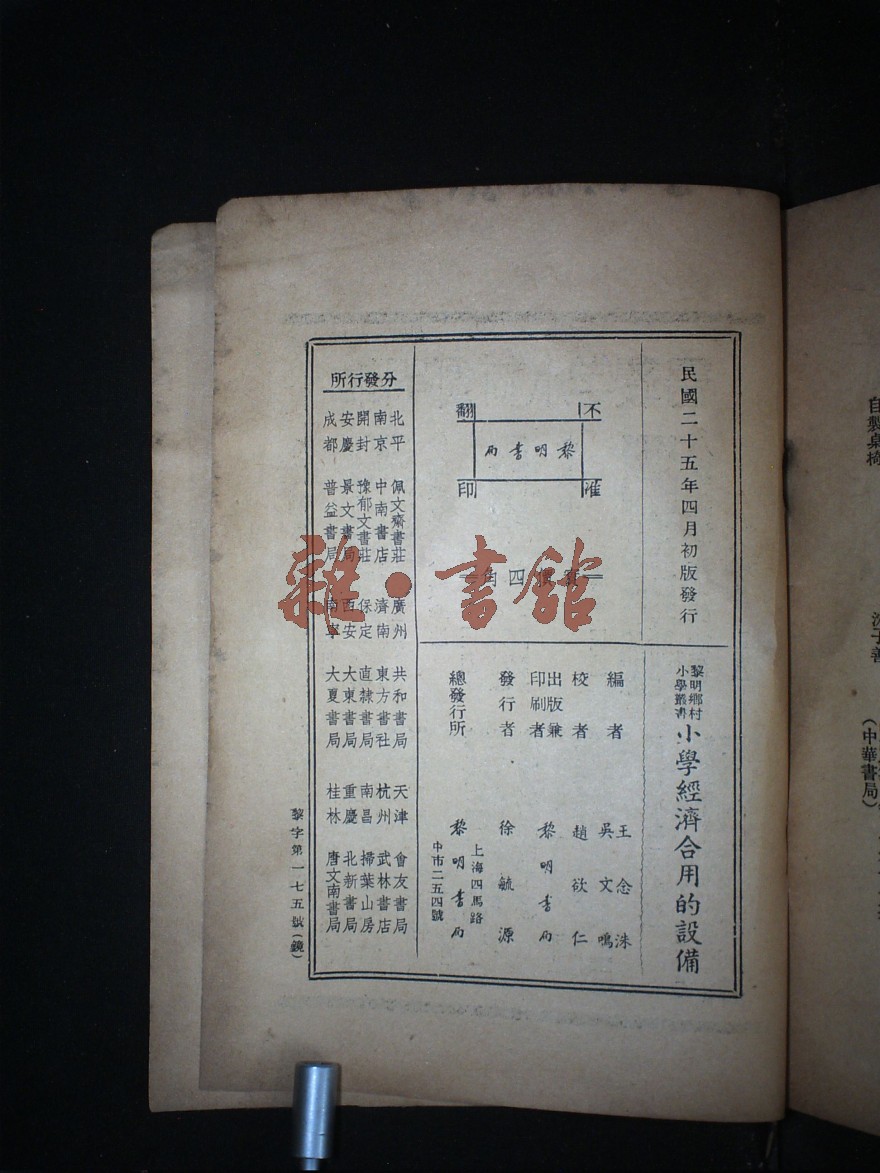 民國二十五年四月初版發行
黎明鄉村
小學叢書
小學經濟合用的設備
不准翻印
黎明書局
實價四角
編者 王念洙
吳文鳴
校者 趙欲仁
出版兼
印刷者 黎明書局
發行者 徐毓源
總發行所 上海四馬路
中市二五四號
黎明書局
分發行所
北平 佩文齋書莊 廣州 共和書局 天津 會友書局
南京 中南書店 濟南 東方書社 杭州 武林書店
開封 豫郁文書莊 保定 直隸書局 南昌 掃葉山房
安慶 景文書局 西安 大東書局 重慶 北新書局
成都 普益書局 南寧 大夏書局 桂林 唐文南書局
黎字第一七五號(鏡)
雜·書館
自製桌椅
(中華書局)